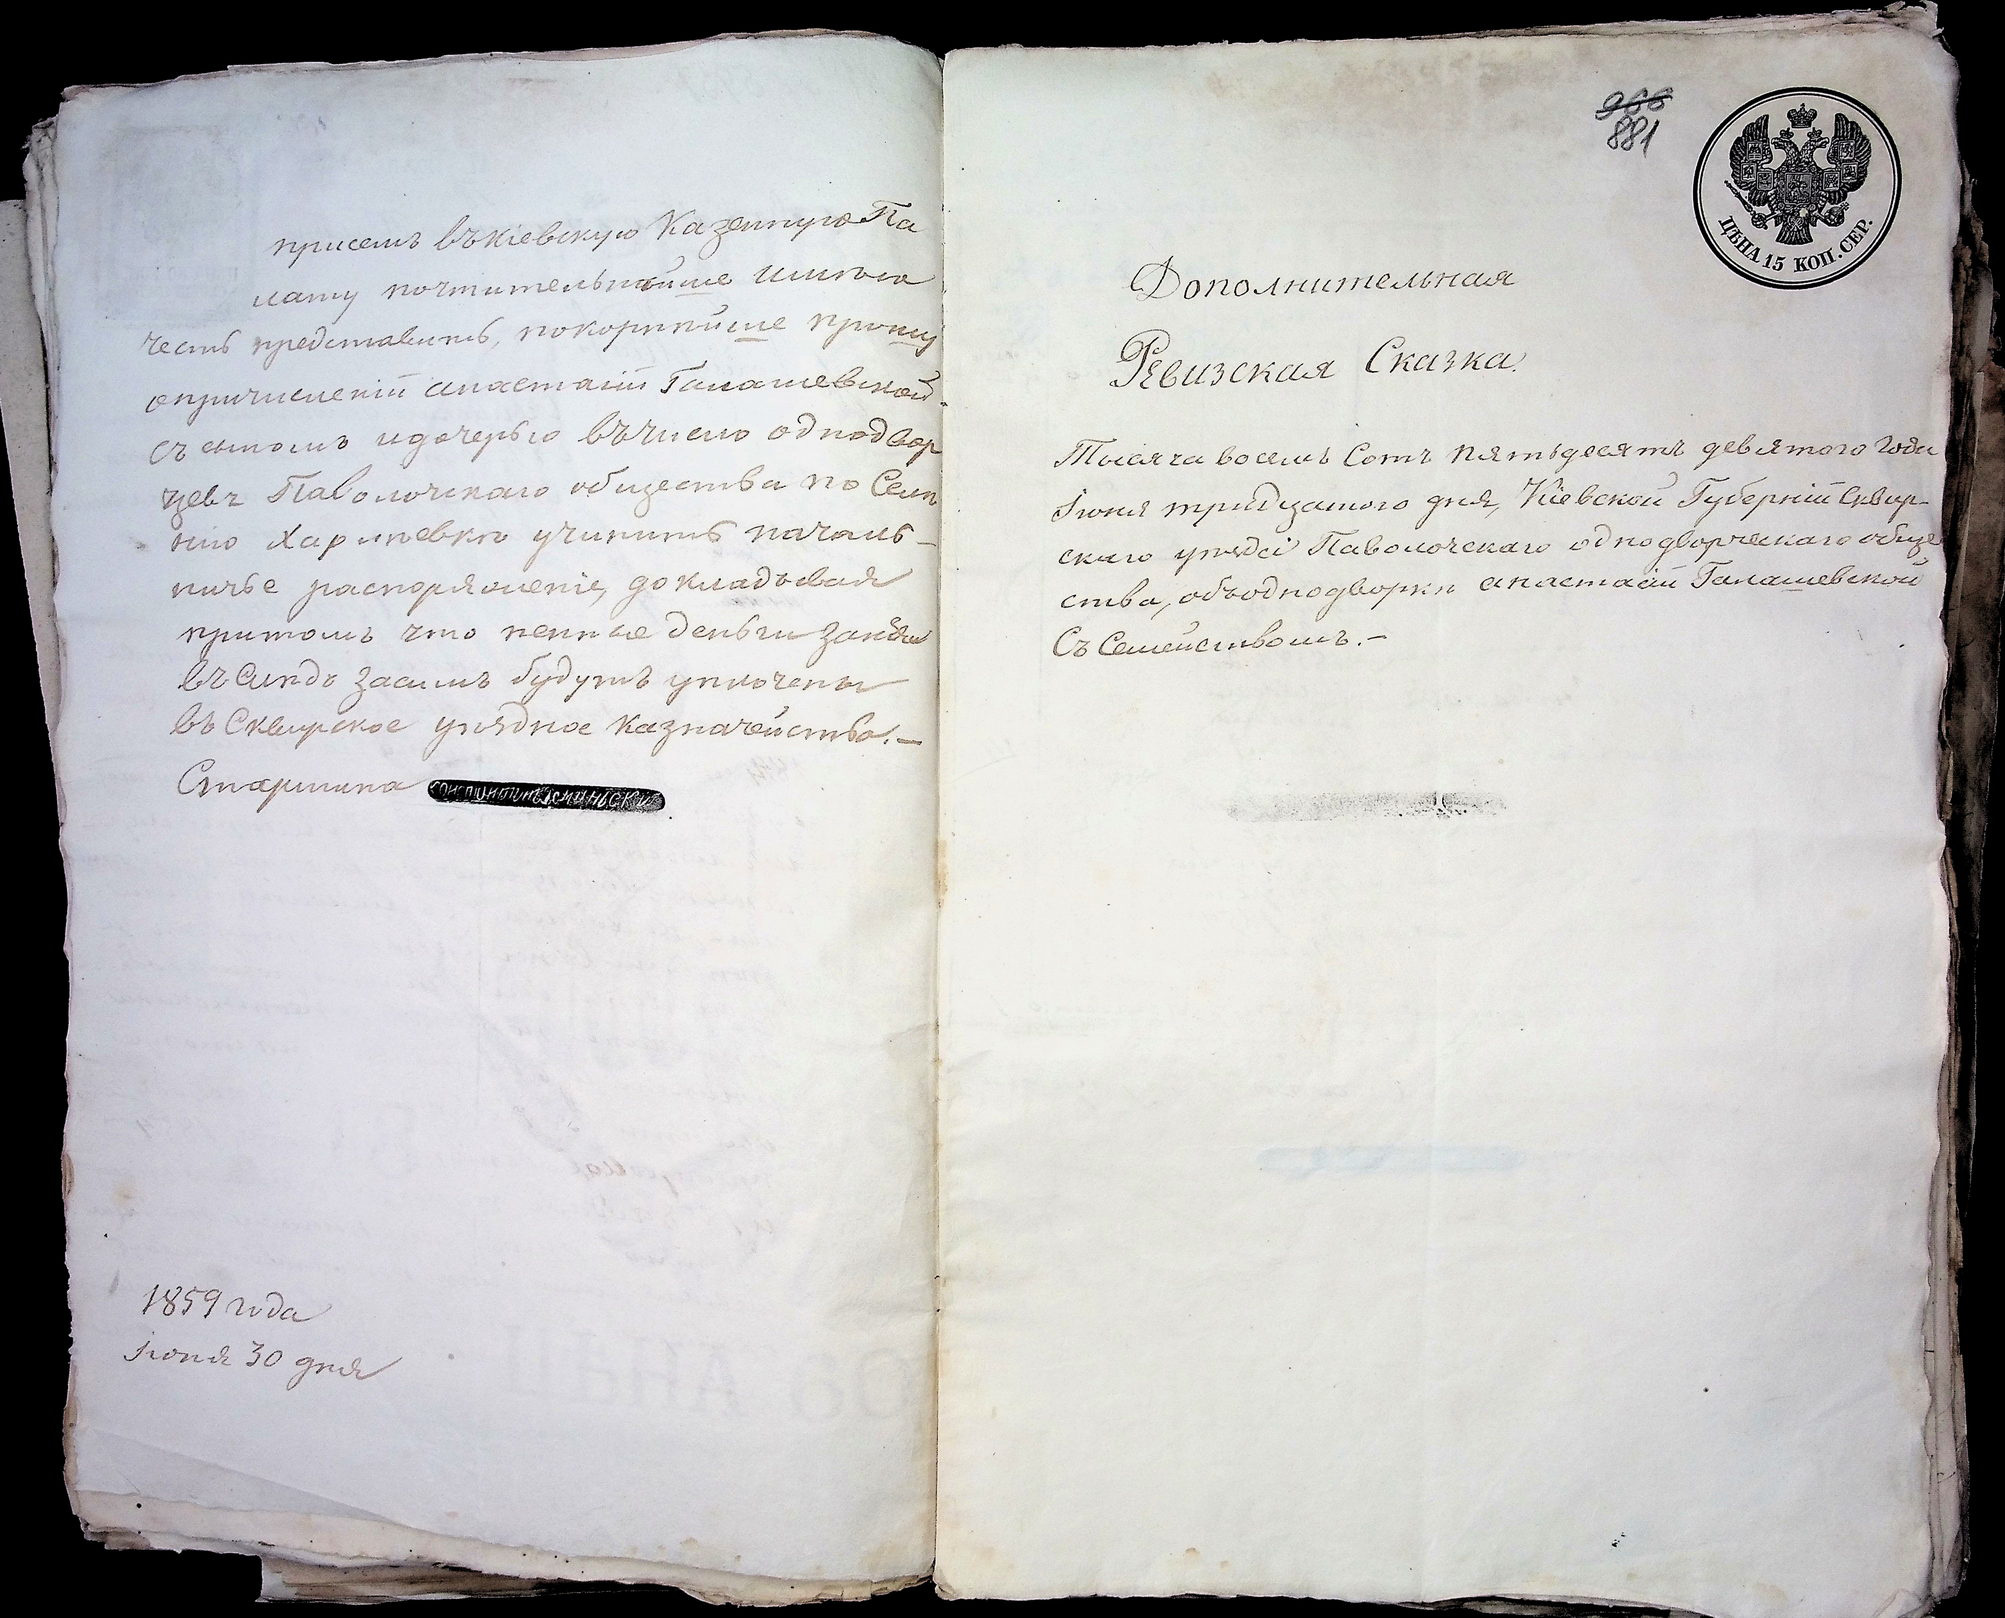 присемъ въ Кіевскую Казенную Па
лату почтительнѣйше имѣю
честь представить, покорнѣйше прошу
о причисленій анастасій Галашевской
съ сыномъ и дочерью въ число однодвор
цевъ Паволочскаго общества по Селѣ
нію Харлѣевкѣ учинить началь-
ничье распоряженіе, докладывая
притомъ что пенные деньги
въ Слѣдъ засимъ будутъ уплочены
въ Сквирское уѣздное Казначейство.-
Старшина
1859 года
Іюня 30 дня
966
881
ЦѢНА 15 КОП. СЕР.
Дополнительная
Ревизская Сказка.
Тысяча восемъ Сотъ пятьдесятъ девятого года
Іюня тридцатого дня, Кіевской Губерній Сквир-
скаго уѣзда Паволочскаго однодворческаго обще
ства, объ однодворкѣ анастасій Галашевской
Съ Семействомъ.-